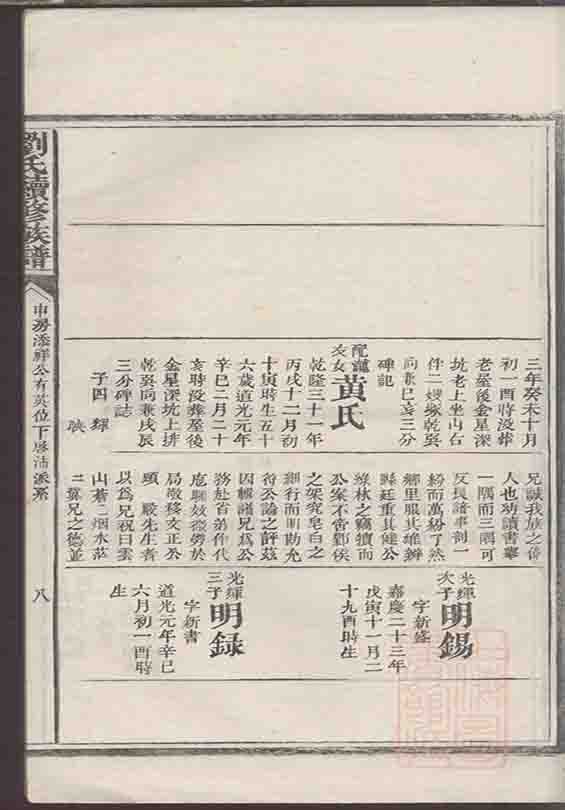 三年癸未十月
初一酉時没葬
老屋後金星深
坑老上坐山右
件二嫂塚乾巽
向兼巳亥三分
碑記
配龍
文女
黃氏
乾隆三十一年
丙戌十二月初
十寅時生五十
六歲道光元年
辛巳二月二十
亥時没葬屋後
金星深坑上排
乾巽向兼戌辰
三分碑誌
子四
輝
映
兄誠我族之偉
人也幼讀書舉
一隅而三隅可
反長諳事剖一
紛而萬紛了然
鄉里服其雄辯
縣廷重其健公
綠林之竊犢而
公案不啻鄭侯
之架究皂白之
細行而明勘允
符公論之評茲
因輶議兄爲公
務赴百弟侍代
庖聊效微勞於
局敬移支正公
頭嚴先生者
以爲兄祝曰雲
山蒼々烟水茫
々算兄之德並
光輝
次子
明錫
字新盛
嘉慶二十三年
戊寅十一月二
十九酉時生
光輝
三子
明録
字新書
道光元年辛巳
六月初一酉時
生
劉氏續修族譜
申房添祥公有英位下啓沽派系
八